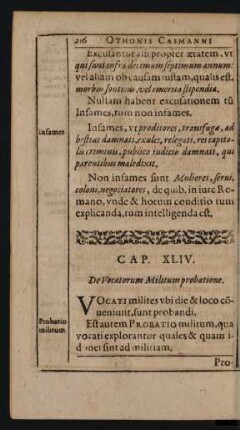 216 OTHONIS CASMANNI
Excusantur alii propter ætatem, vt
qui sunt infra decimum septimum annum:
vel aliam ob causam iustam, qualis est,
morbus sonticus, vel emerita stipendia.
Nullam habent excusationem tū
Infames, tum non infames.
Infames
Infames, vt proditores, transfugæ, ad
bestias damnati, exules, relegati, rei capita-
lis criminis, publico iudicio damnati, qui
parentibus maledixit.
Non infames sunt Mulieres, serui,
coloni, negociatores, de quib. in iure Ro-
mano, vnde & horum conditio tum
explicanda, tum intelligenda est.
CAP. XLIV.
De Vocatorum Militum probatione.
VOCATI milites vbi die & loco cō-
ueniunt, sunt probandi.
Probatio
militum
Est autem PROBATIO militum, qua
vocati explorantur quales & quam i-
donei sint ad militiam.
Pro-